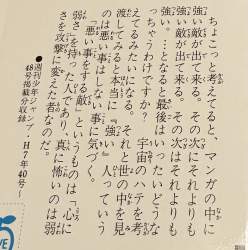 ちょこっと考えてると、マンガの中に
強い敵が出て来る。その次にそれよりも
強い敵が出て来る。その次はそれよりも
強い。…となると最後はいったいどうな
っちゃうわけですか？　宇宙のハテを考
えてるみたいになる。それと世の中を見
渡してみると本当に『強い』人っていう
のは悪い事はしない事に気づく。
「悪い事をする敵」というものは「心に
弱さ」を持った人であり、真に怖いのは弱
さを攻撃に変えた者なのだ。
●週刊少年ジャンプ・H7年40号〜
48号掲載分収録